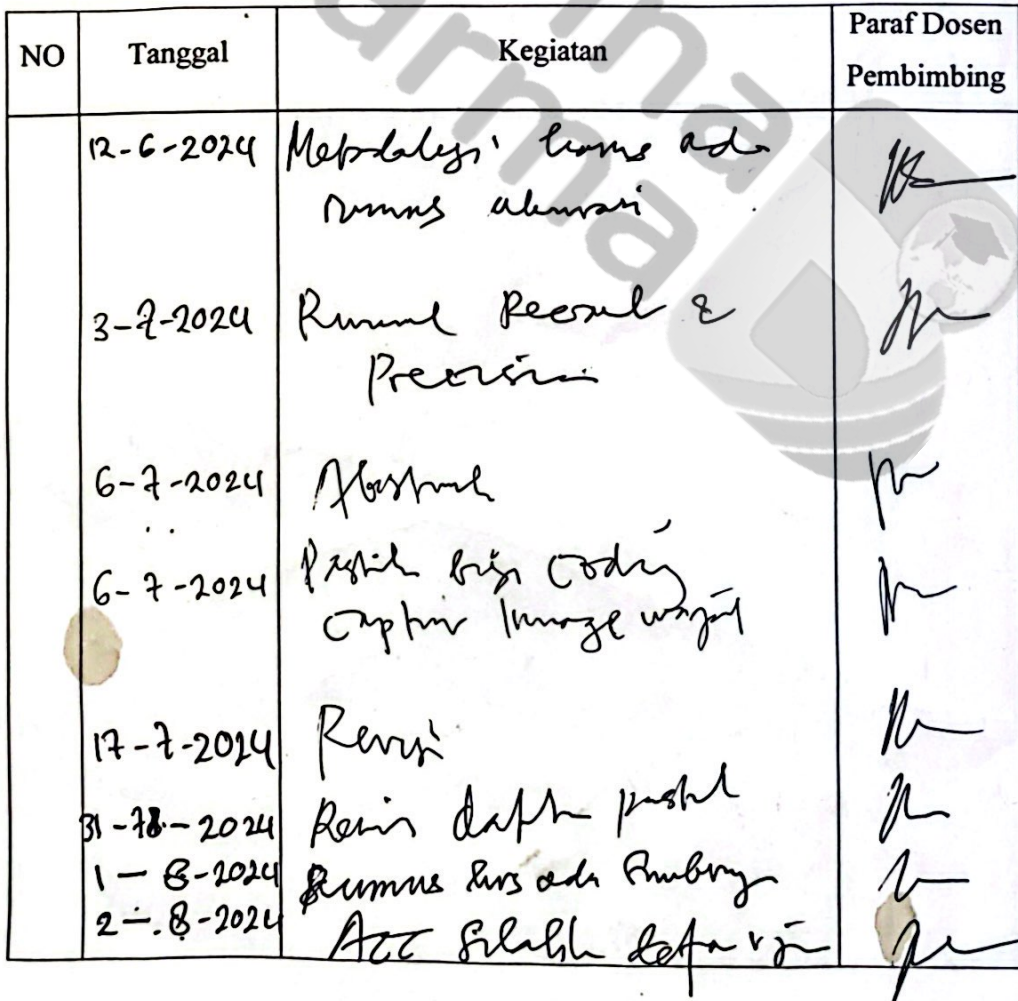 NO Tanggal Kegiatan Paraf Dosen
Pembimbing
12-6-2024 Metodologi harus ada
rumus akurasi
3-7-2024 Rumus Recall &
Precision
6-7-2024 Abstrak
6-7-2024 coding
Capture Image wajah
17-7-2024 Revisi
31-7-2024 Revisi daftar pustaka
1-8-2024 Rumus hrs ada Sumbernya
2-8-2024 ACC Silahkan daftar uji